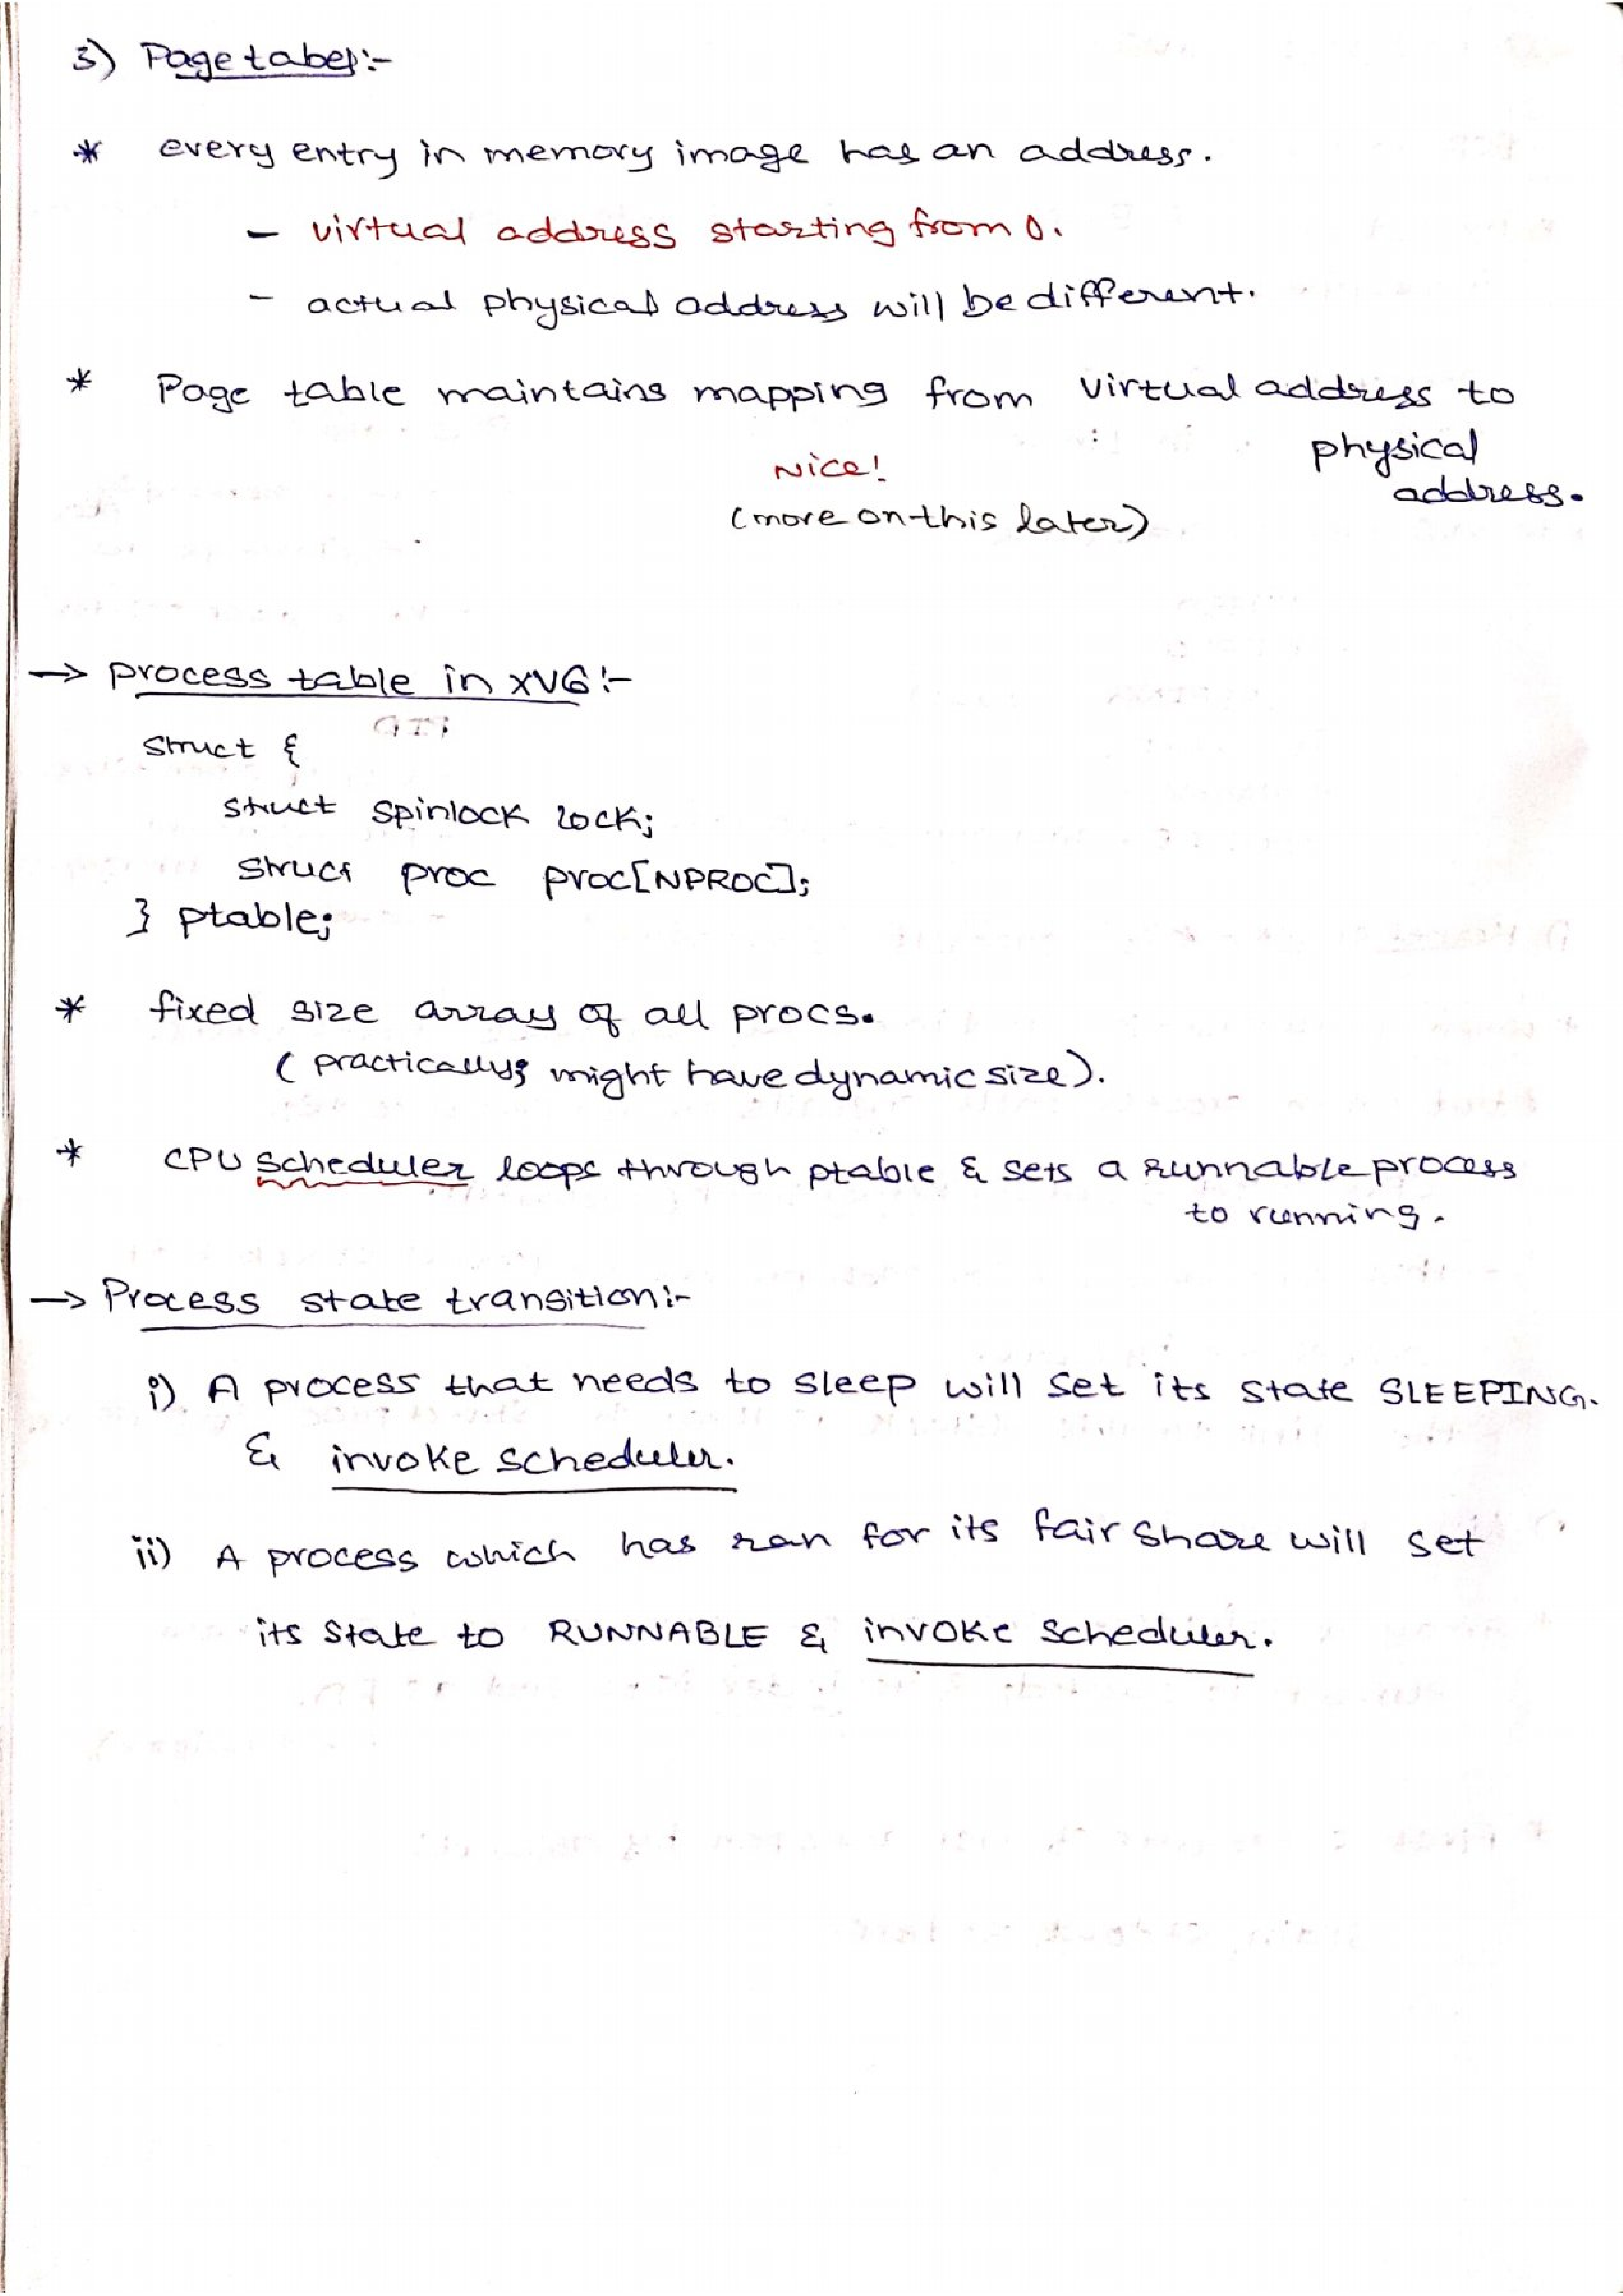 3) Page tabel:-
* every entry in memory image has an address.
- virtual address starting from 0.
- actual physical address will be different.
* Page table maintains mapping from virtual address to
physical
address.
Nice!
(more on this later)
-> process table in XV6:-
struct {
struct spinlock lock;
struct proc proc[NPROC];
} ptable;
* fixed size array of all procs.
( practically, might have dynamic size).
* CPU scheduler loops through ptable & sets a runnable process
to running.
-> Process state transition:-
i) A process that needs to sleep will set its state SLEEPING.
& invoke scheduler.
ii) A process which has ran for its fair share will set
its state to RUNNABLE & invoke scheduler.